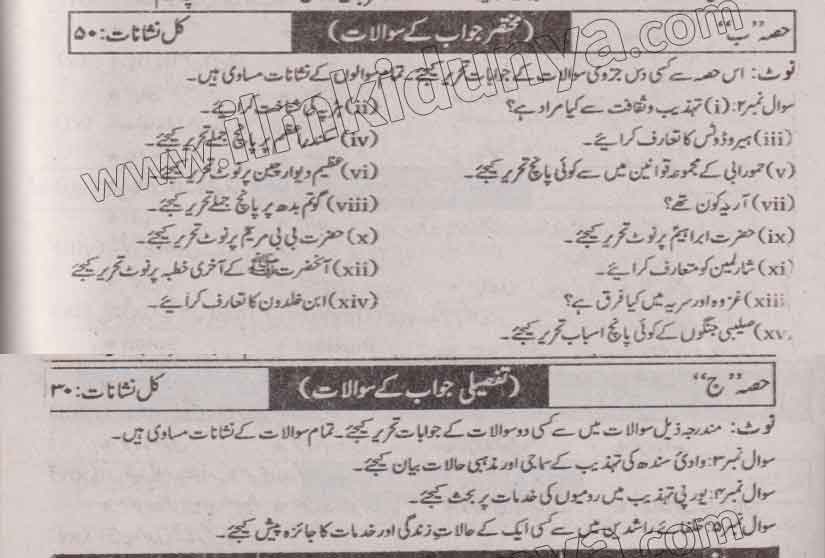 حصہ ”ب“ (مختصر جواب کے سوالات) کل نشانات: ۵۰
نوٹ: اس حصہ سے کسی دس جزوی سوالات کے جوابات تحریر کیجئے۔ تمام سوالوں کے نشانات مساوی ہیں۔
سوال نمبر۲: (i) تہذیب و ثقافت سے کیا مراد ہے؟ (ii) ہڑپہ کی شناخت کرائیے۔
(iii) ہیروڈوٹس کا تعارف کرائیے۔ (iv) سکندراعظم پر پانچ جملے تحریر کیجئے۔
(v) حمورابی کے مجموعہ قوانین میں سے کوئی پانچ تحریر کیجئے۔ (vi) عظیم دیوار چین پر نوٹ تحریر کیجئے۔
(vii) آریہ کون تھے؟ (viii) گوتم بدھ پر پانچ جملے تحریر کیجئے۔
(ix) حضرت ابراہیمؑ پر نوٹ تحریر کیجئے۔ (x) حضرت بی بی مریمؑ پر نوٹ تحریر کیجئے۔
(xi) شارلمین کو متعارف کرائیے۔ (xii) آنحضرت ﷺ کے آخری خطبہ پر نوٹ تحریر کیجئے
(xiii) غزوہ اور سریہ میں کیا فرق ہے؟ (xiv) ابن خلدون کا تعارف کرائیے۔
(xv) صلیبی جنگوں کے کوئی پانچ اسباب تحریر کیجئے۔
حصہ ”ج“ (تفصیلی جواب کے سوالات) کل نشانات: ۳۰
نوٹ: مندرجہ ذیل سوالات میں سے کسی دو سوالات کے جوابات تحریر کیجئے۔ تمام سوالات کے نشانات مساوی ہیں۔
سوال نمبر۳: وادیٔ سندھ کی تہذیب کے سماجی اور مذہبی حالات بیان کیجئے۔
سوال نمبر۴: یورپی تہذیب میں رومیوں کی خدمات پر بحث کیجئے۔
سوال نمبر۵: خلفائے راشدین میں سے کسی ایک کے حالاتِ زندگی اور خدمات کا جائزہ پیش کیجئے۔
www.ilmkidunya.com